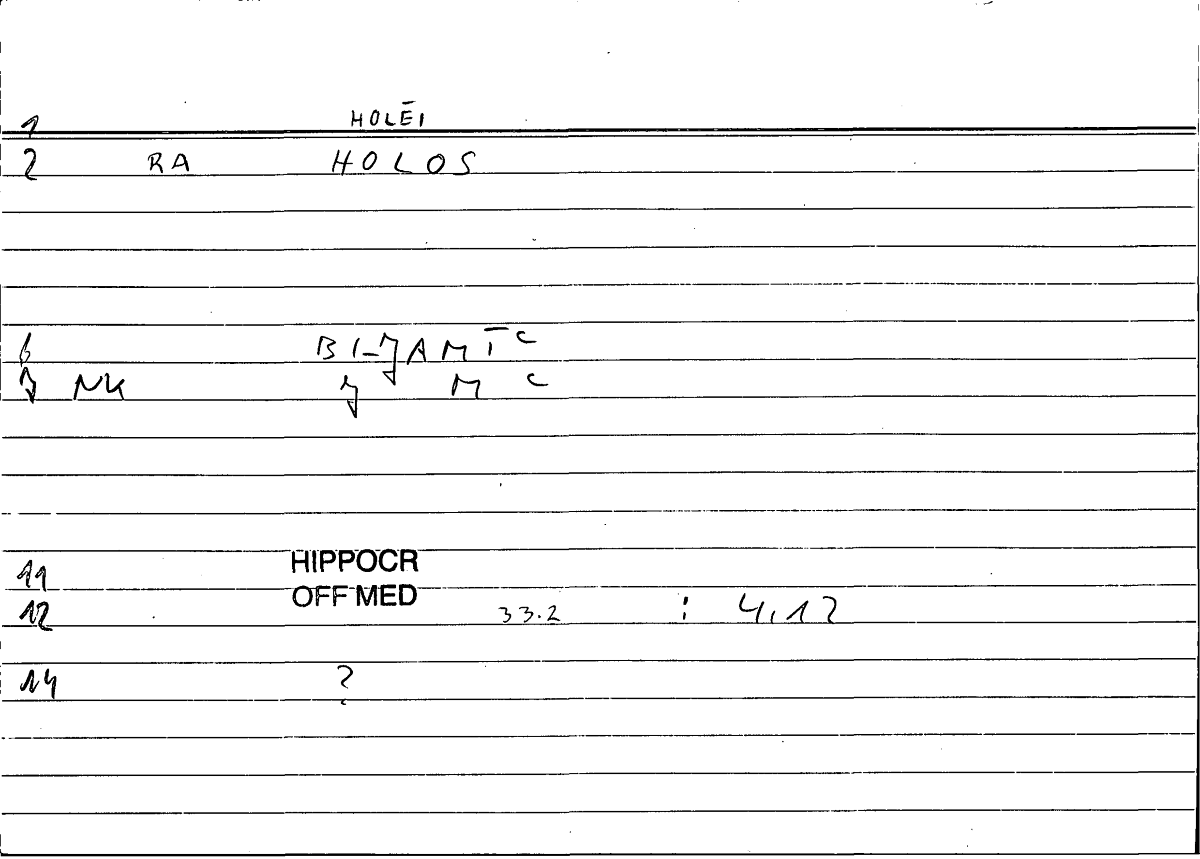 1 HOLĒI
2 RA HOLOS
6 BI-JAMĪC
7 NK J M C
11 HIPPOCR
12 OFF MED 33.2 : 4,12
14 ?